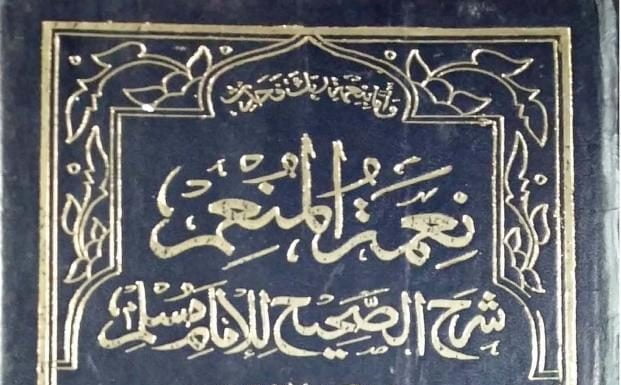 وأما بنعمة ربك فحدث
نِعمة المُنعِم
شرح الصَّحيح للإمام مسلم